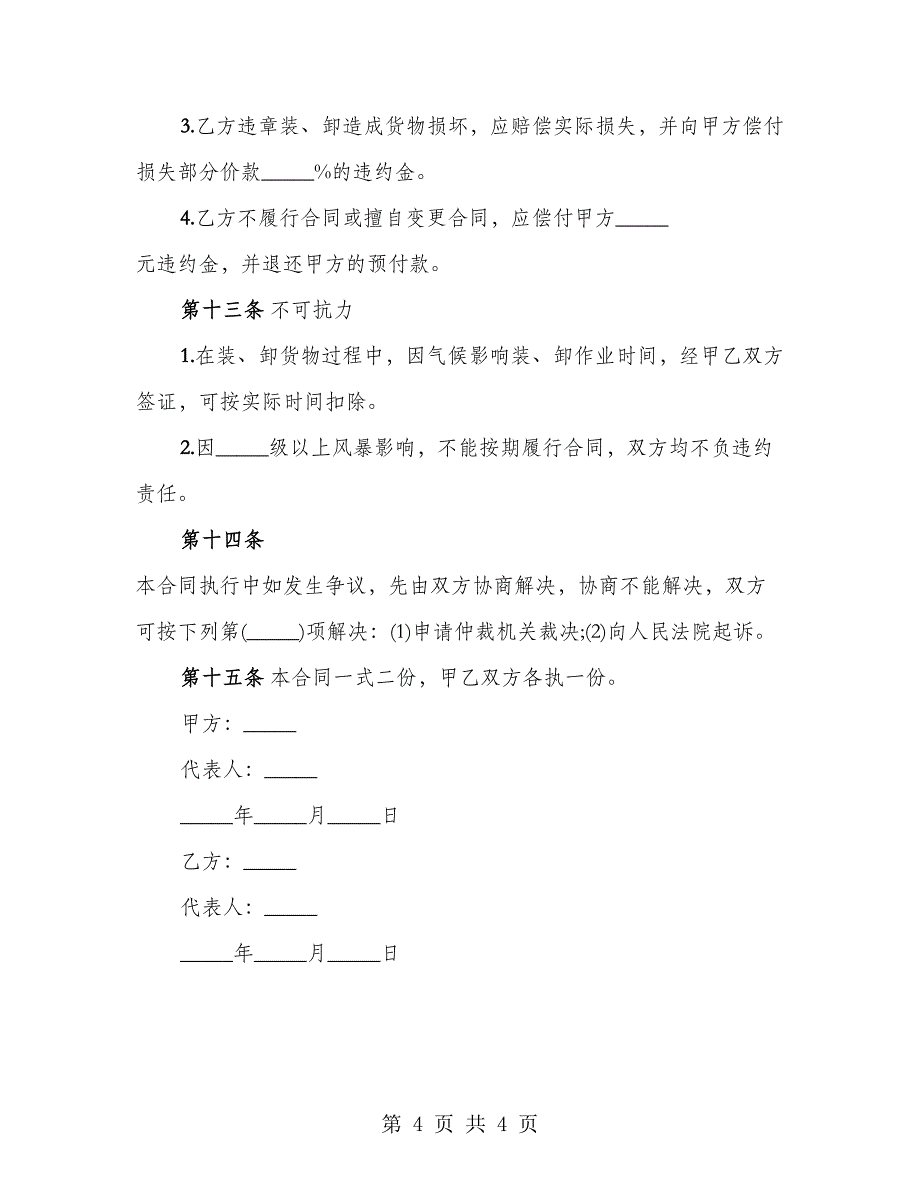 3.乙方违章装、卸造成货物损坏，应赔偿实际损失，并向甲方偿付
损失部分价款_____%的违约金。
4.乙方不履行合同或擅自变更合同，应偿付甲方_____
元违约金，并退还甲方的预付款。
第十三条 不可抗力
1.在装、卸货物过程中，因气候影响装、卸作业时间，经甲乙双方
签证，可按实际时间扣除。
2.因_____级以上风暴影响，不能按期履行合同，双方均不负违约
责任。
第十四条
本合同执行中如发生争议，先由双方协商解决，协商不能解决，双方
可按下列第(_____)项解决：(1)申请仲裁机关裁决;(2)向人民法院起诉。
第十五条 本合同一式二份，甲乙双方各执一份。
甲方：_____
代表人：_____
_____年_____月_____日
乙方：_____
代表人：_____
_____年_____月_____日
第 4 页 共 4 页